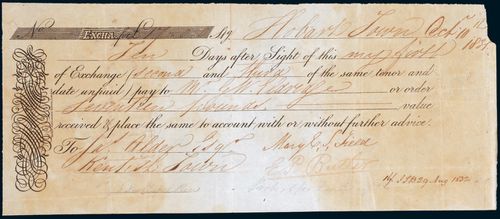 No. EXCHA for £17 Stg Hobart Town Oct 10th 1831
Ten Days after Sight of this my first
of Exchange second and third of the same tenor and
date unpaid, pay to Mr M. or order
Seventeen pounds value
received & place the same to account, with or without further advice.
To Jas Alder Esqr Mary E. Field
Kentish Town
29 Aug 1832